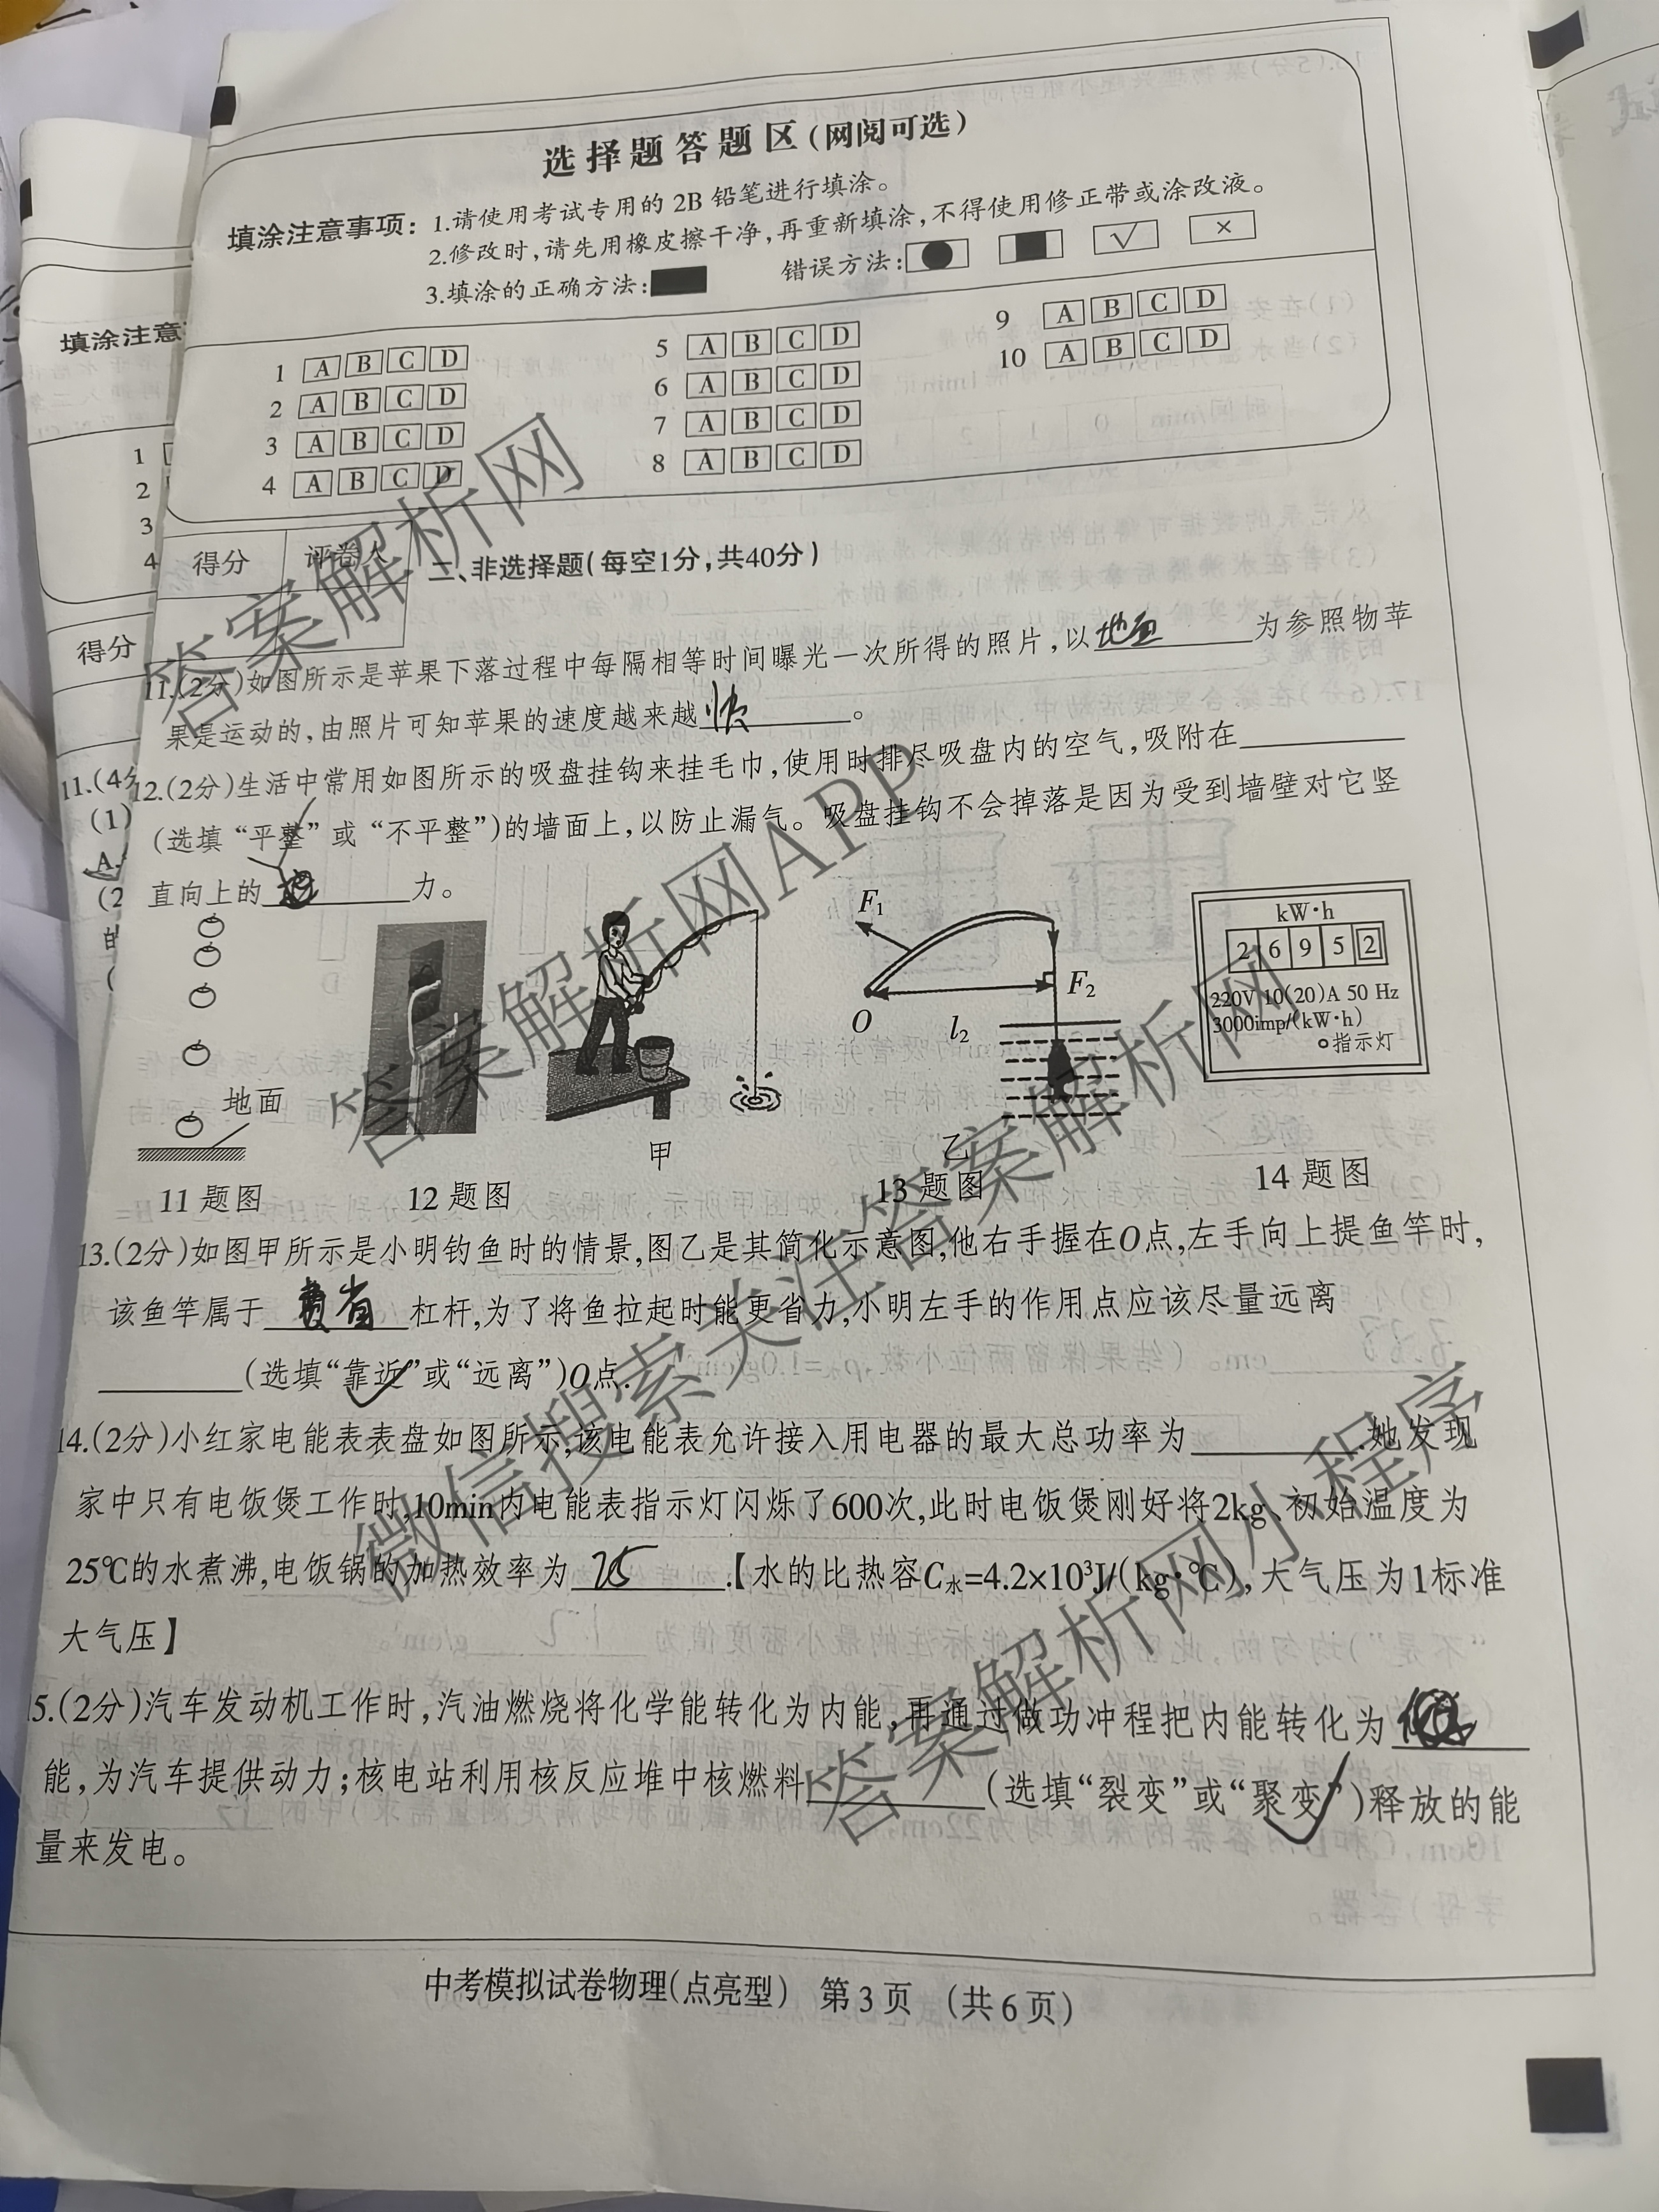 选择题答题区(网阅可选)
填涂注意事项：1.请使用考试专用的 2B 铅笔进行填涂。
2.修改时,请先用橡皮擦干净,再重新填涂,不得使用修正带或涂改液。
3.填涂的正确方法: 错误方法: √ ×
1 A B C D
2 A B C D
3 A B C D
4 A B C D
5 A B C D
6 A B C D
7 A B C D
8 A B C D
9 A B C D
10 A B C D
填涂注意
1
2
3
4
得分
11.(4分
(1)
A.
(2
得分 评卷人
二、非选择题(每空1分,共40分)
11.(2分)如图所示是苹果下落过程中每隔相等时间曝光一次所得的照片,以地面为参照物苹
果是运动的,由照片可知苹果的速度越来越快。
12.(2分)生活中常用如图所示的吸盘挂钩来挂毛巾,使用时排尽吸盘内的空气,吸附在
(选填“平整”或“不平整”)的墙面上,以防止漏气。吸盘挂钩不会掉落是因为受到墙壁对它竖
直向上的 力。
地面
11 题图
12 题图
甲
F₁
O
l₂
F₂
乙
13 题图
kW·h
2 6 9 5 2
220V 10(20)A 50 Hz
3000imp/(kW·h)
指示灯
14 题图
13.(2分)如图甲所示是小明钓鱼时的情景,图乙是其简化示意图,他右手握在O点,左手向上提鱼竿时,
该鱼竿属于 省 杠杆,为了将鱼拉起时能更省力,小明左手的作用点应该尽量远离
(选填“靠近”或“远离”)O点.
14.(2分)小红家电能表表盘如图所示,该电能表允许接入用电器的最大总功率为 .她发现
家中只有电饭煲工作时,10min内电能表指示灯闪烁了600次,此时电饭煲刚好将2kg、初始温度为
25℃的水煮沸,电饭锅的加热效率为 75 .【水的比热容C水=4.2×10³J/(kg·℃),大气压为1标准
大气压】
5.(2分)汽车发动机工作时,汽油燃烧将化学能转化为内能,再通过做功冲程把内能转化为
能,为汽车提供动力;核电站利用核反应堆中核燃料 (选填“裂变”或“聚变”)释放的能
量来发电。
中考模拟试卷物理(点亮型) 第3页 (共6页)
答案解析网
答案解析网APP
微信搜索关注答案解析网
答案解析网小程序